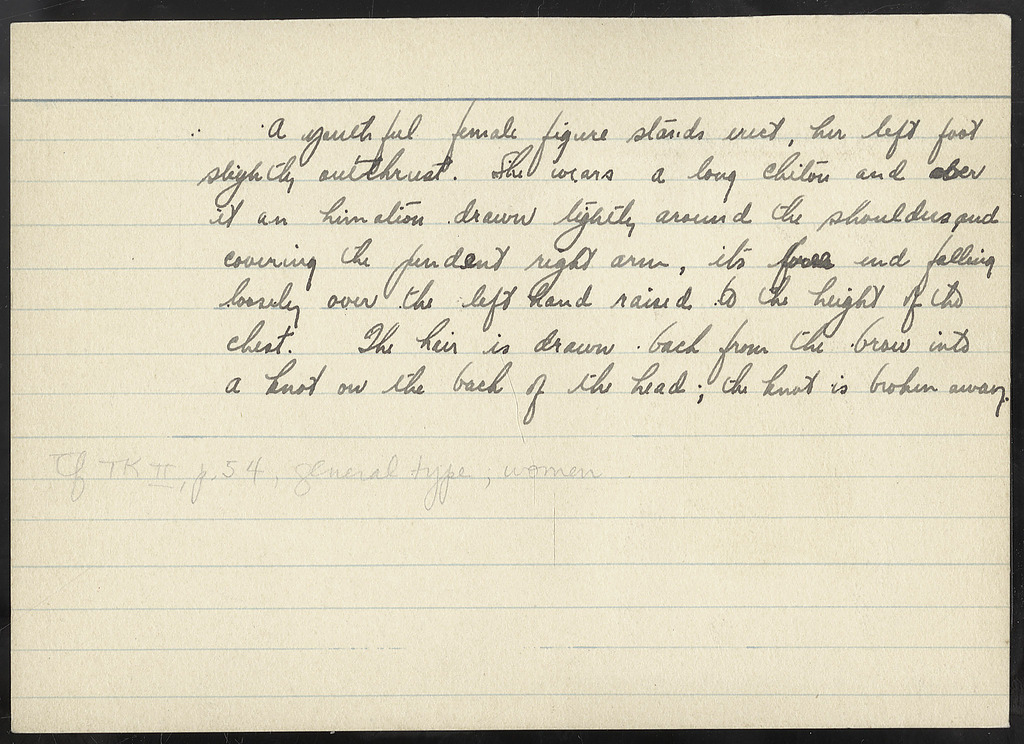 A youthful female figure stands erect, her left foot
slightly outthrust. She wears a long chiton and over
it an himation drawn tightly around the shoulders and
covering the pendent right arm, its free end falling
loosely over the left hand raised to the height of the
chest. The hair is drawn back from the brow into
a knot on the back of the head; the knot is broken away.
Cf TK II, p. 54, general type, women